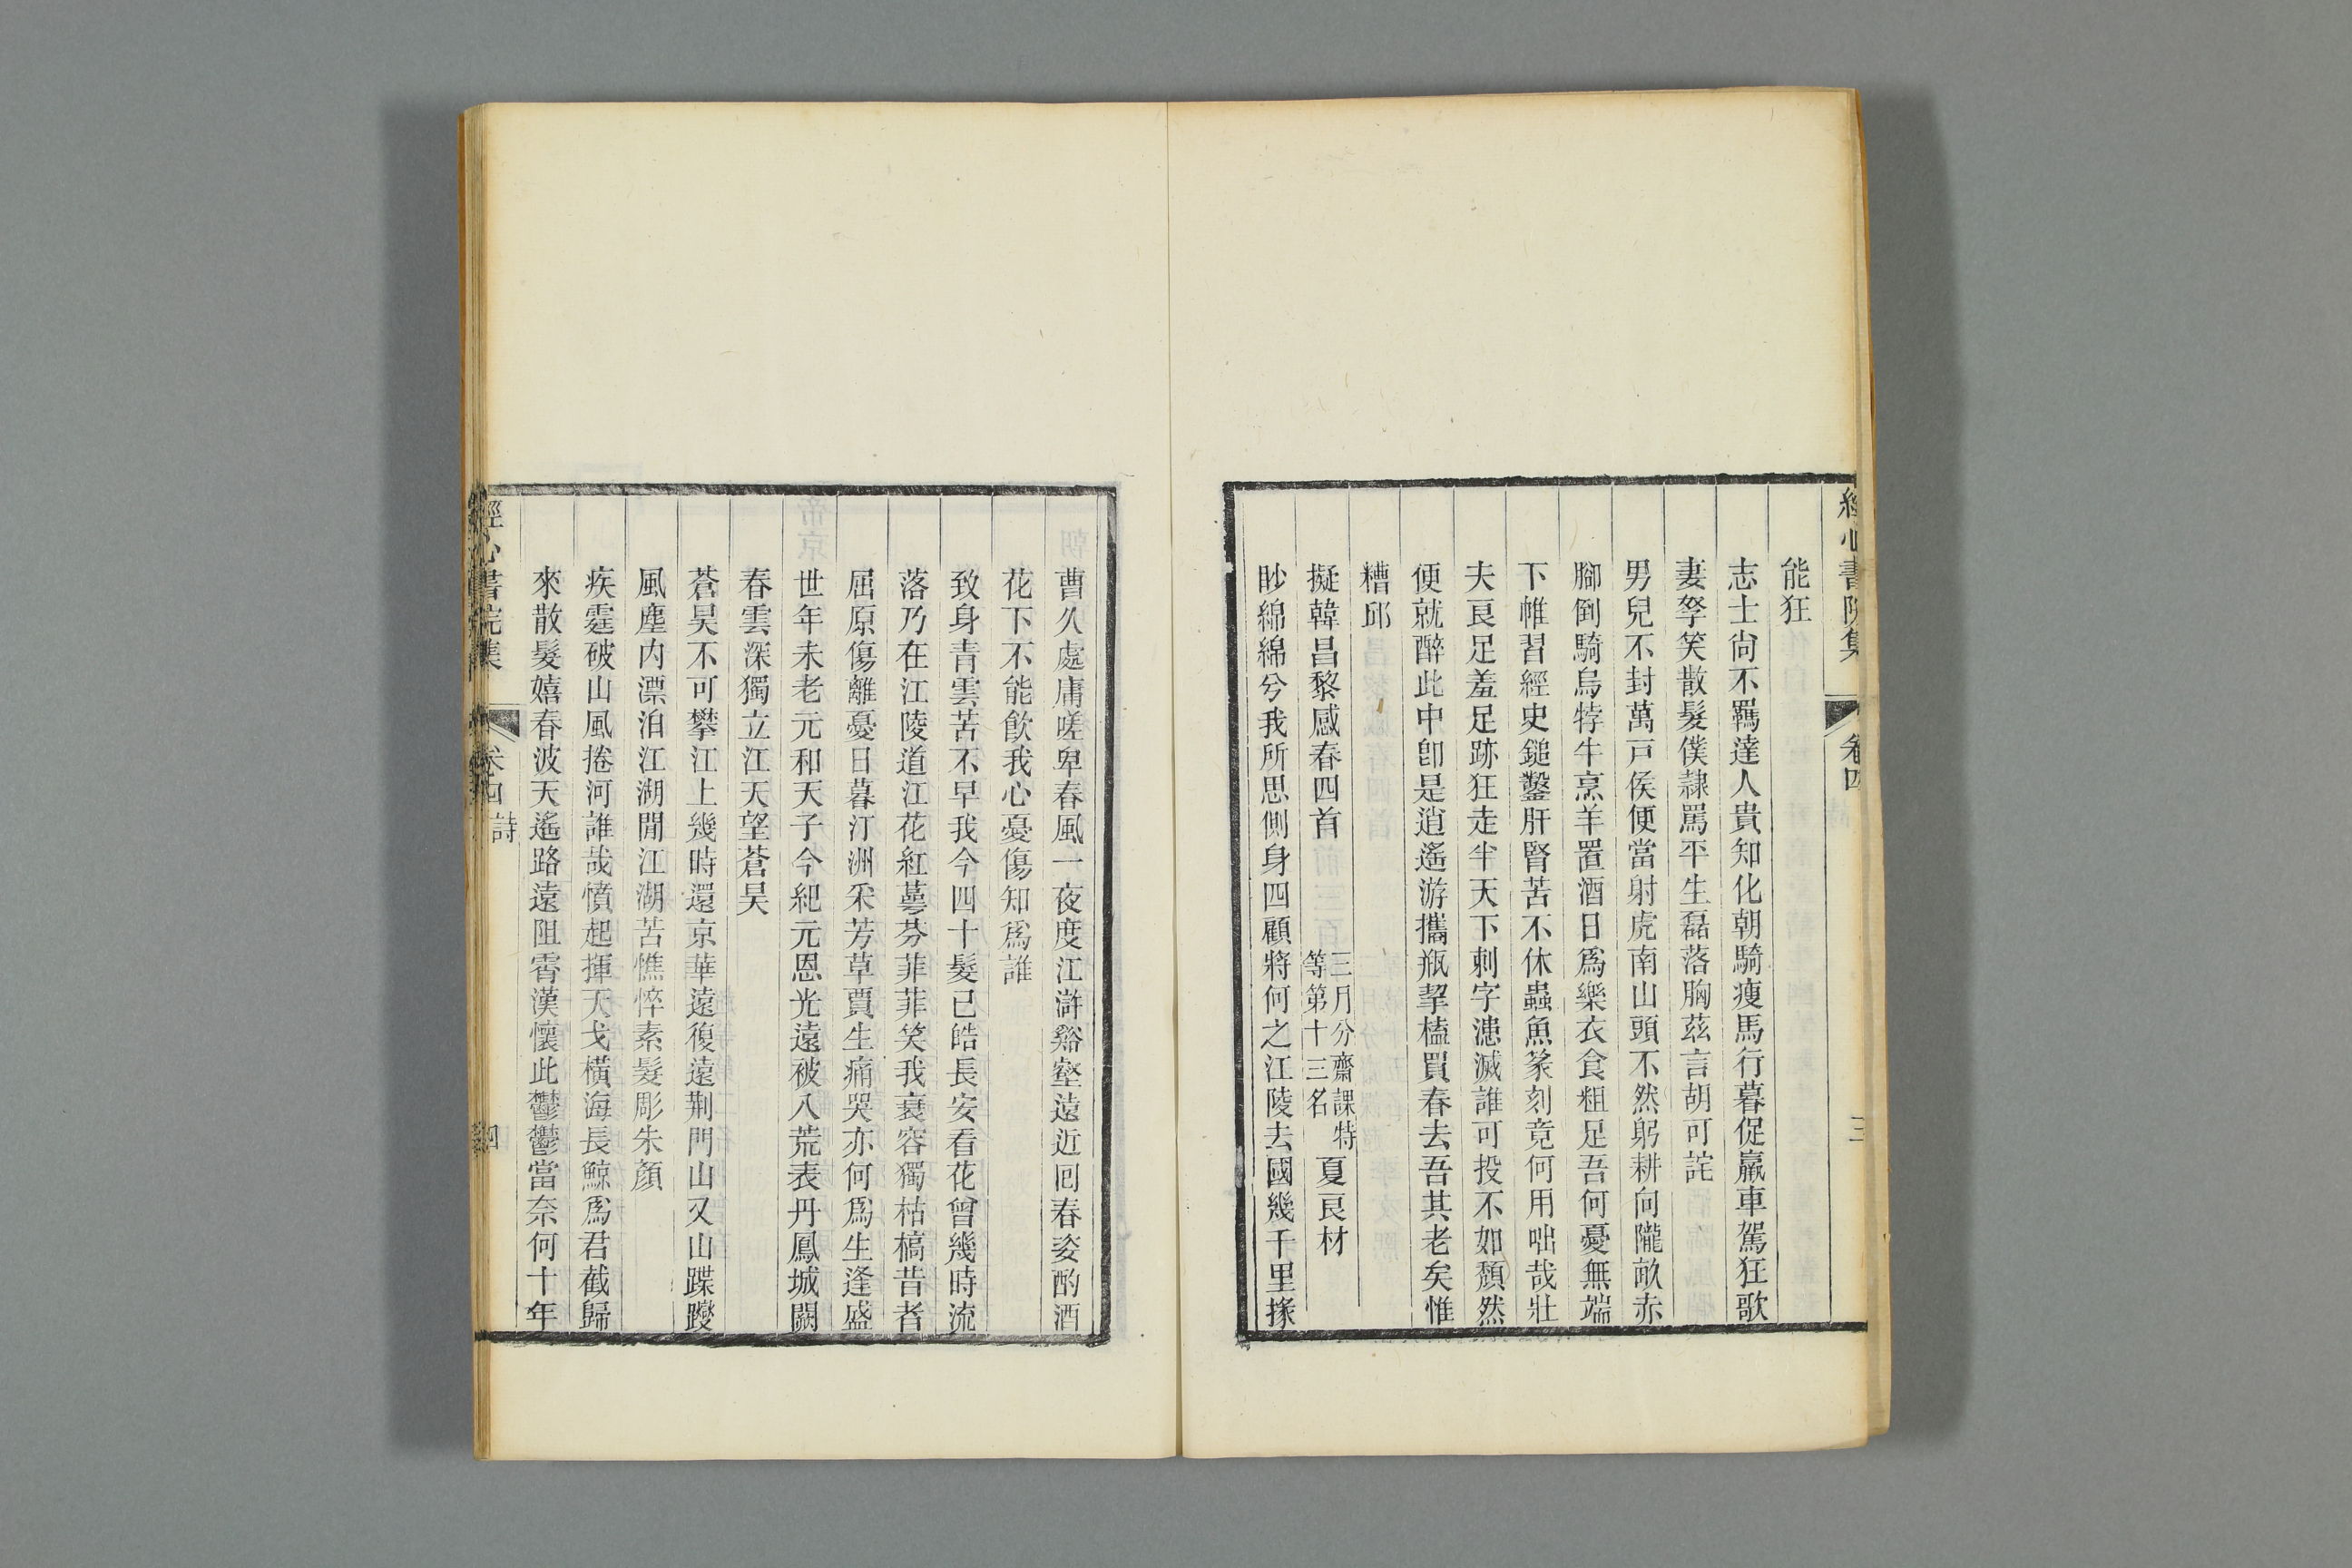 經心書院集 卷四 三
能狂
志士尙不羈達人貴知化朝騎瘦馬行暮促羸車駕狂歌
妻孥笑散髮僕隸罵平生磊落胸茲言胡可詫
男兒不封萬戸侯便當射虎南山頭不然躬耕向隴畝赤
腳倒騎烏牸牛烹羊置酒日爲樂衣食粗足吾何憂無端
下帷習經史鎚鑿肝腎苦不休蟲魚篆刻竟何用咄哉壯
夫良足羞足跡狂走半天下刺字漶滅誰可投不如頹然
便就醉此中卽是逍遙游攜瓶挈榼買春去吾其老矣惟
糟邱
擬韓昌黎感春四首 三月分齋課特等第十三名 夏良材
眇綿綿兮我所思側身四顧將何之江陵去國幾千里掾
曹久處庸嗟卑春風一夜度江滸谿壑遠近囘春姿酌酒
花下不能飮我心憂傷知爲誰
致身青雲苦不早我今四十髮已皓長安看花曾幾時流
落乃在江陵道江花紅蕚芬菲菲笑我衰容獨枯槁昔者
屈原傷離憂日暮汀洲采芳草賈生痛哭亦何爲生逢盛
世年未老元和天子今紀元恩光遠被八荒表丹鳳城闕
春雲深獨立江天望蒼昊
蒼昊不可攀江上幾時還京華遠復遠荆門山又山蹀躞
風塵内漂泊江湖閒江湖苦憔悴素髮彫朱顏
疾霆破山風捲河誰哉憤起揮天戈橫海長鯨爲君截歸
來散髮嬉春波天遙路遠阻霄漢懷此鬱鬱當奈何十年
經心書院集 卷四 詩 四